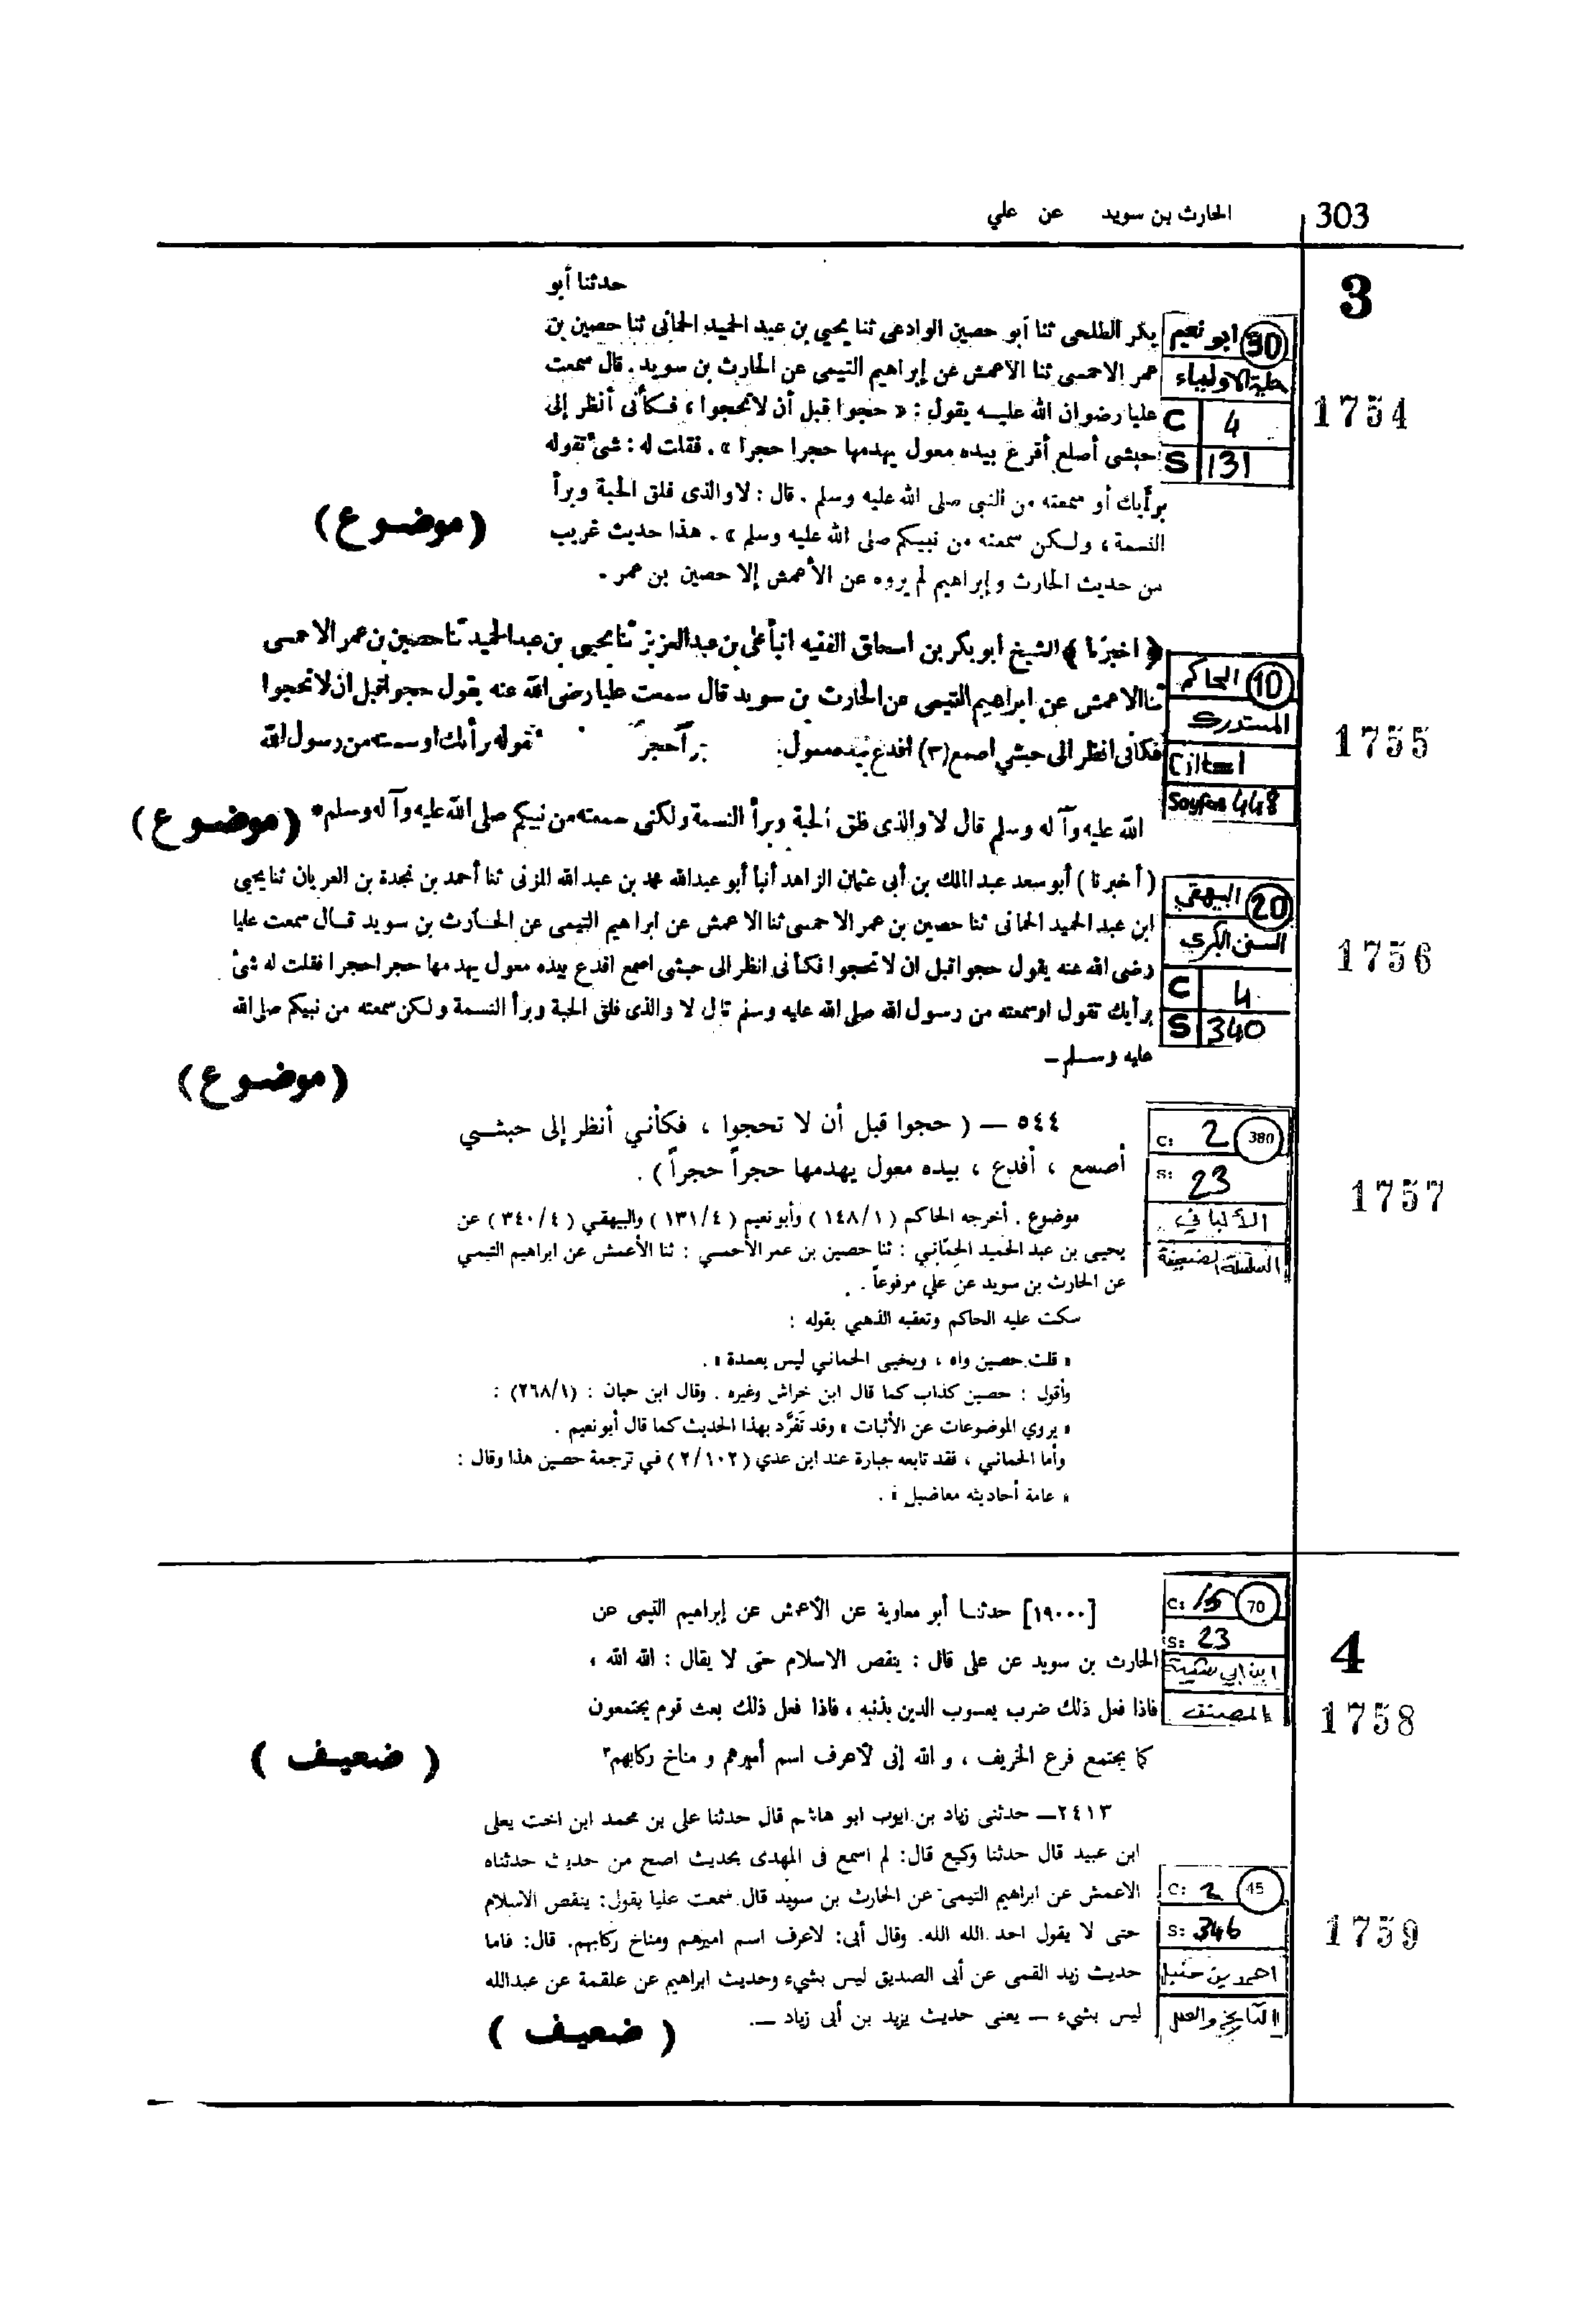 303
الحارث بن سويد عن علي
3
حدثنا أبو
بكر الطلحى ثنا أبو حصين الوادعى ثنا يحيى بن عبد الحميد الحمانى ثنا حصين بن
عمر الاحمسى ثنا الأعمش عن إبراهيم التيمى عن الحارث بن سويد. قال سمعت
عليا رضوان الله عليه يقول: « حجوا قبل أن لا تحجوا، فكأنى أنظر إلى
حبشى أصلع أقرع بيده معول يهدمها حجرا حجرا ». فقلت له: شئ تقوله
برأيك أو سمعته من النبى صلى الله عليه وسلم. قال: لا والذى فلق الحبة وبرأ
النسمة، ولكن سمعته من نبيكم صلى الله عليه وسلم ». هذا حديث غريب
من حديث الحارث وإبراهيم لم يروه عن الأعمش إلا حصين بن عمر.
(موضوع)
90 ابو نعيم
حلية الاولياء
C 4
S 131
1754
﴿ اخبرنا ﴾ الشيخ ابو بكر بن اسحاق الفقيه انبأ على بن عبد العزيز ثنا يحيى بن عبد الحميد ثنا حصين بن عمر الاحمسى
ثنا الاعمش عن ابراهيم التيمى عن الحارث بن سويد قال سمعت عليا رضى الله عنه يقول حجوا قبل ان لا تحجوا
فكأنى انظر الى حبشي اصمع (٣) افدع بيده معول حجر تقوله برأيك او سمعته من رسول الله
الله عليه وآله وسلم قال لا والذى فلق الحبة وبرأ النسمة ولكنى سمعته من نبيكم صلى الله عليه وآله وسلم * (موضوع)
10 الحاكم
المستدرك
Cilt 1
Sayfa 448
1755
(أخبرنا) أبو سعد عبد المالك بن أبى عثمان الزاهد أنبأ أبو عبدالله محمد بن عبد الله المزنى ثنا أحمد بن نجدة بن العريان ثنا يحيى
ابن عبد الحميد الحمانى ثنا حصين بن عمر الاحمسى ثنا الاعمش عن ابراهيم التيمى عن الحارث بن سويد قال سمعت عليا
رضى الله عنه يقول حجوا قبل ان لا تحجوا فكأنى انظر الى حبشى اصمع افدع بيده معول يهدمها حجرا حجرا فقلت له شئ
برأيك تقول او سمعته من رسول الله صلى الله عليه وسلم قال لا والذى فلق الحبة وبرأ النسمة ولكن سمعته من نبيكم صلى الله
عليه وسلم -
(موضوع)
20 البيهقي
السنن الكبرى
C 4
S 340
1756
٥٤٤ — ( حجوا قبل أن لا تحجوا ، فكأني أنظر إلى حبشي
أصمع ، أفدع ، بيده معول يهدمها حجراً حجراً ) .
موضوع . أخرجه الحاكم ( ١/ ١٤٨ ) وأبو نعيم ( ٤/ ١٣١ ) والبيهقي ( ٤/ ٣٤٠ ) عن
يحيى بن عبد الحميد الحِمّاني : ثنا حصين بن عمر الأحمسي : ثنا الأعمش عن ابراهيم التيمي
عن الحارث بن سويد عن علي مرفوعاً .
سكت عليه الحاكم وتعقبه الذهبي بقوله :
« قلت حصين واه ، ويحيى الحماني ليس بعمدة » .
وأقول : حصين كذاب كما قال ابن خراش وغيره . وقال ابن حبان : (١/ ٢٦٨) :
« يروي الموضوعات عن الأثبات » وقد تَفَرَّد بهذا الحديث كما قال أبو نعيم .
وأما الحماني ، فقد تابعه جبارة عند ابن عدي ( ١٠٢/ ٢ ) في ترجمة حصين هذا وقال :
« عامة أحاديثه معاضيل » .
C: 2 380
S: 23
الألباني
السلسلة الضعيفة
1757
4
[١٩٠٠٠] حدثنا أبو معاوية عن الأعمش عن إبراهيم التيمى عن
الحارث بن سويد عن على قال : ينقص الاسلام حتى لا يقال : الله الله ،
فاذا فعل ذلك ضرب يعسوب الدين بذنبه ، فاذا فعل ذلك بعث قوم يجتمعون
كما يجتمع فرع الخريف ، و الله إنى لأعرف اسم أميرهم و مناخ ركابهم٣
( ضعيف )
C: 15 70
S: 23
ابن ابي شيبة
المصنف
1758
٢٤١٣— حدثنى زياد بن ايوب ابو هاشم قال حدثنا على بن محمد ابن اخت يعلى
ابن عبيد قال حدثنا وكيع قال: لم اسمع فى المهدى بحديث اصح من حديث حدثناه
الاعمش عن ابراهيم التيمى عن الحارث بن سويد قال سمعت عليا يقول: ينقص الاسلام
حتى لا يقول احد الله الله. وقال أبى: لاعرف اسم اميرهم ومناخ ركابهم. قال: فاما
حديث زيد القمى عن أبى الصديق ليس بشيء وحديث ابراهيم عن علقمة عن عبدالله
ليس بشيء — يعنى حديث يزيد بن أبى زياد —.
( ضعيف )
C: 2 45
S: 346
احمد بن حنبل
التاريخ والعلل
1759